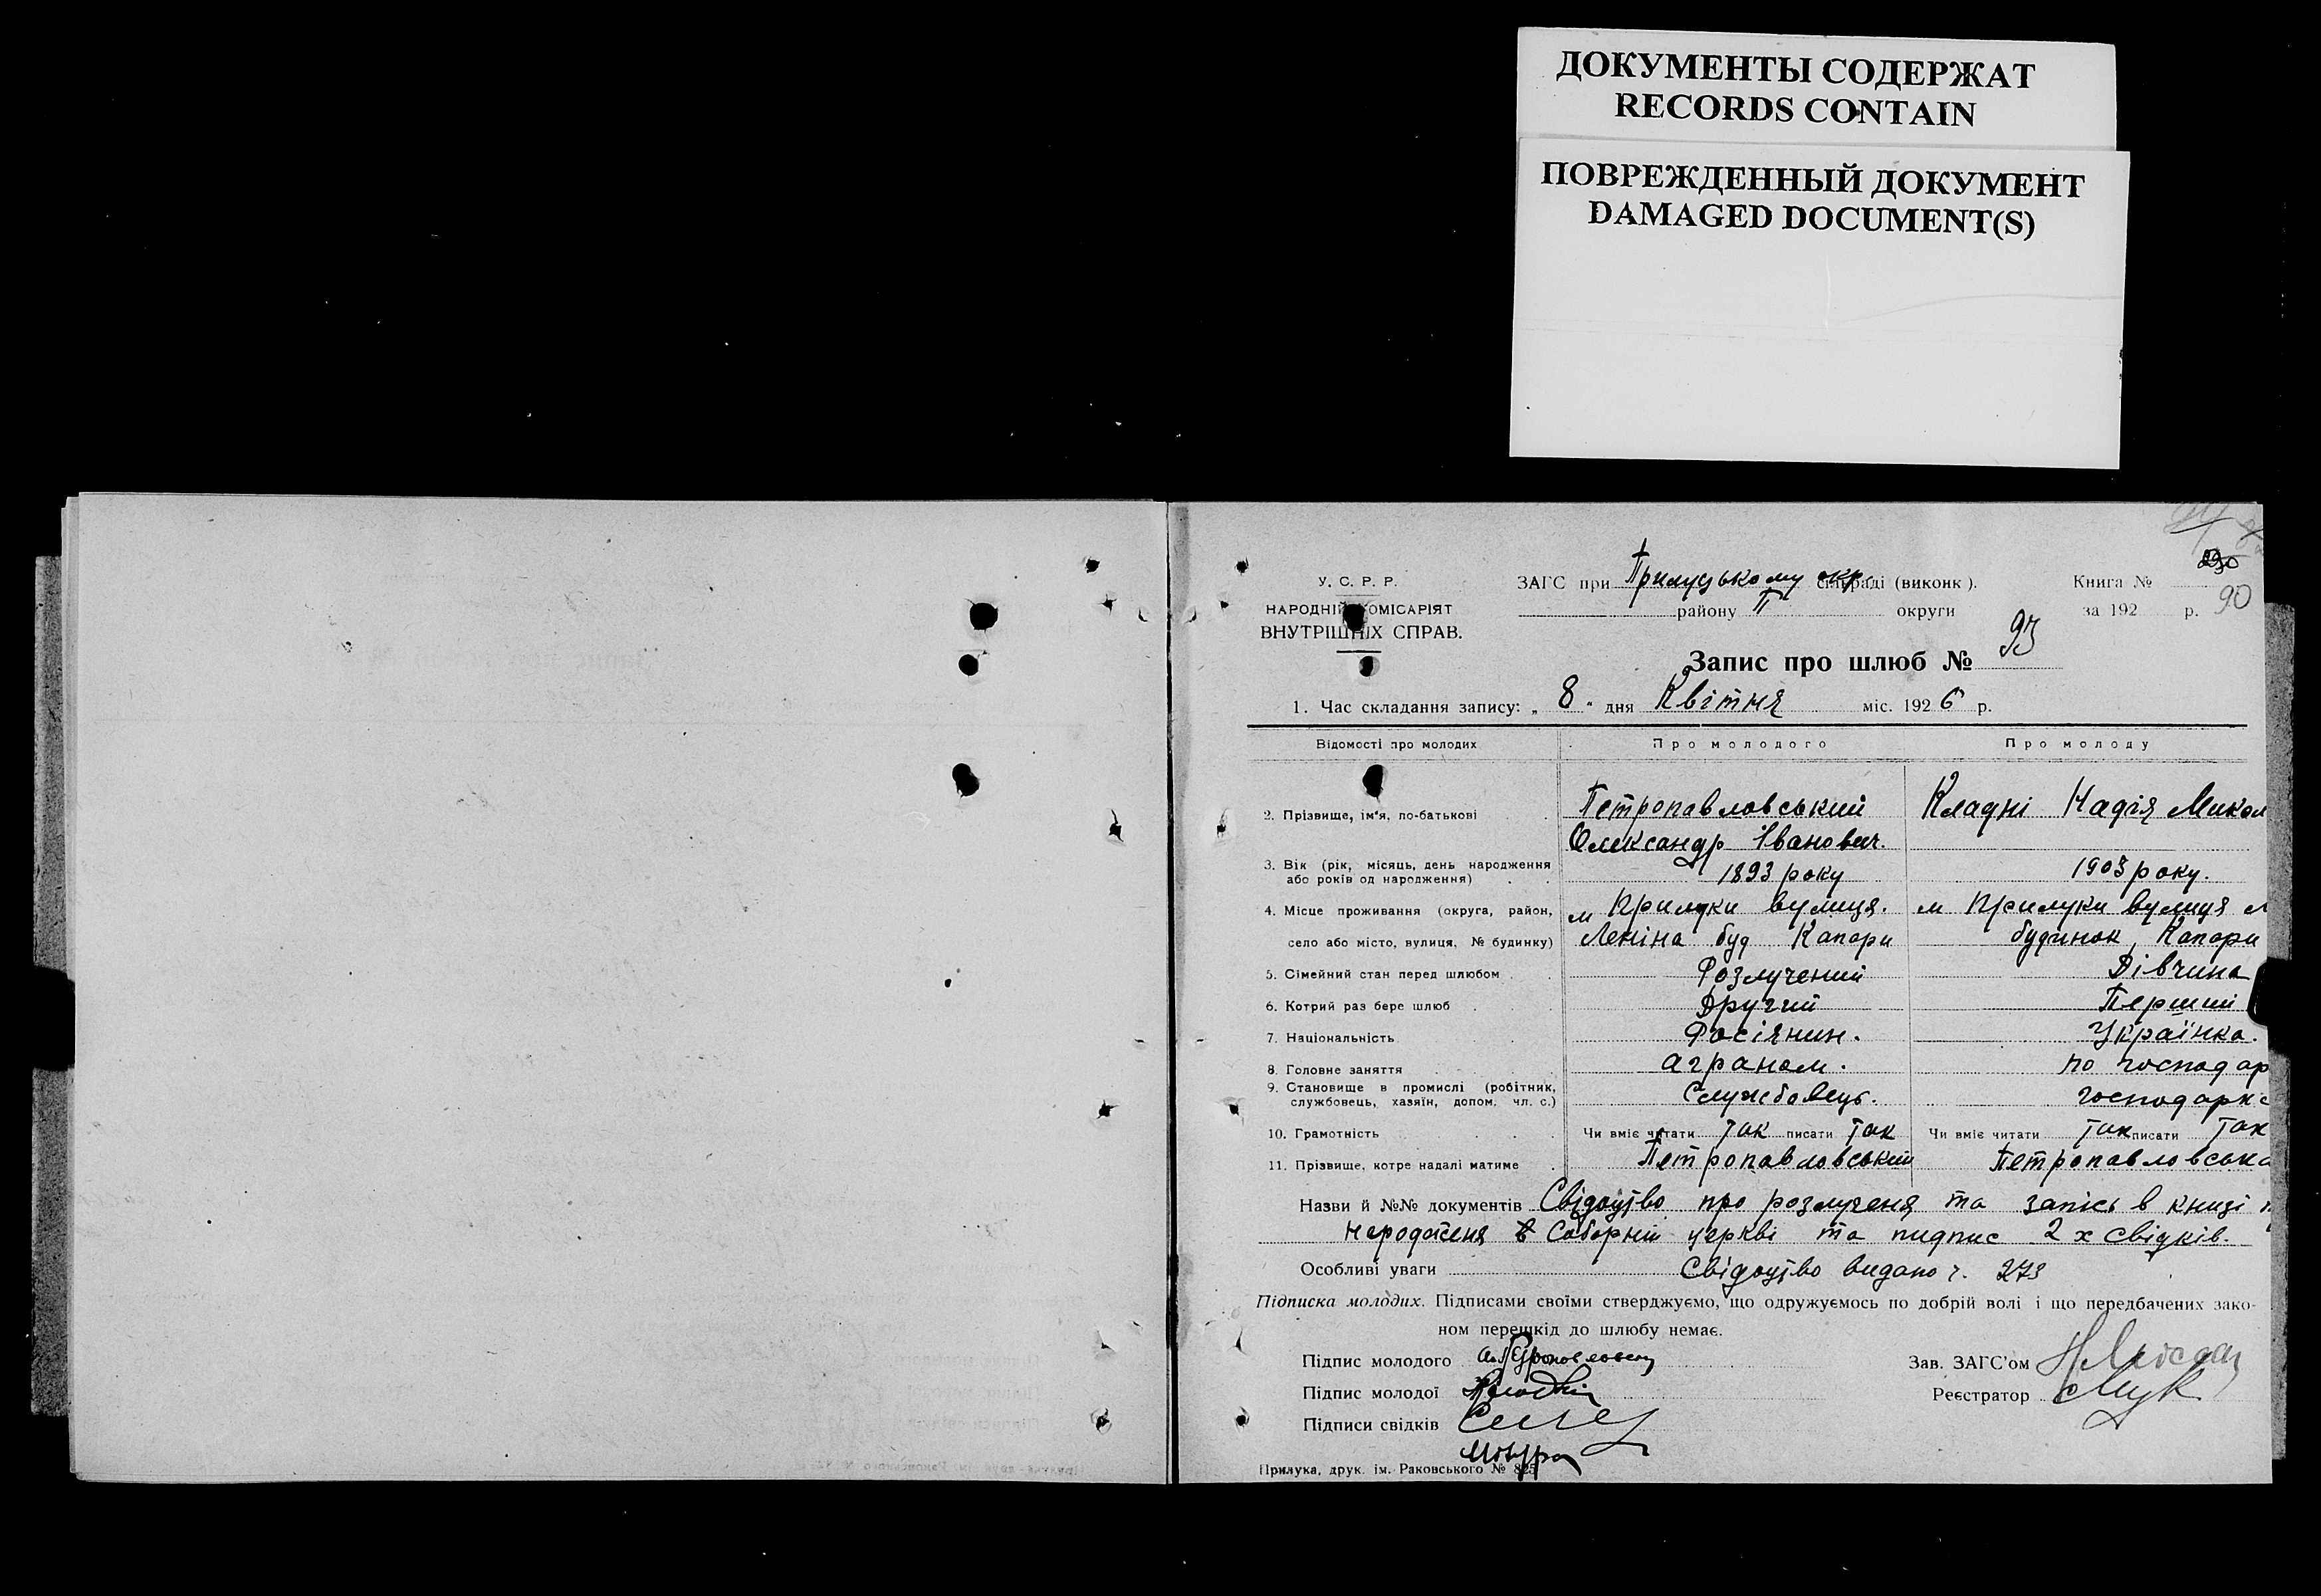 ДОКУМЕНТЫ СОДЕРЖАТ
RECORDS CONTAIN
ПОВРЕЖДЕННЫЙ ДОКУМЕНТ
DAMAGED DOCUMENT(S)
У. С. Р. Р.
НАРОДНІЙ КОМІСАРІЯТ
ВНУТРІШНІХ СПРАВ.
ЗАГС при Прилуцькому окр. (виконк).
району П округи
Книга №
за 192 р. 90
Запис про шлюб № 93
1. Час складання запису: „ 8 " дня Квітня міс. 1926 р.
Відомості про молодих Про молодого Про молоду
2. Прізвище, ім'я, по-батькові Петропавловський Кладні Надія Микол
Олександр Іванович.
3. Вік (рік, місяць, день народження
або років од народження) 1893 року 1903 року.
4. Місце проживання (округа, район, м Прилуки вулиця. м Прилуки вулиця Л
село або місто, вулиця, № будинку) Леніна буд Капори будинок Капори
5. Сімейний стан перед шлюбом Розлучений Дівчина
6. Котрий раз бере шлюб Другий Перший
7. Національність Росіянин. Українка.
8. Головне заняття аграном. по господар
9. Становище в промислі (робітник,
службовець, хазяїн, допом. чл. с.) Службовець. господарк
10. Грамотність Чи вміє читати так писати так Чи вміє читати так писати так
11. Прізвище, котре надалі матиме Петропавловський Петропавловська
Назви й №№ документів Свідоцтво про розлученя та запісь в книзі
народженя в Соборній церкві та пидпис 2 х свідків.
Особливі уваги Свідоцтво видано ч. 273
Підписка молодих. Підписами своїми стверджуємо, що одружуємось по добрій волі і що передбачених зако-
ном перешкід до шлюбу немає.
Підпис молодого
Зав. ЗАГС'ом
Підпис молодої
Реєстратор
Підписи свідків
Прилука, друк. ім. Раковського № 825